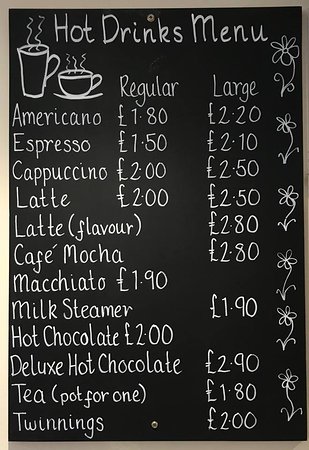 Hot Drinks Menu
Regular Large
Americano £1.80 £2.20
Espresso £1.50 £2.10
Cappuccino £2.00 £2.50
Latte £2.00 £2.50
Latte (flavour) £2.80
Café Mocha £2.80
Macchiato £1.90
Milk Steamer £1.90
Hot Chocolate £2.00
Deluxe Hot Chocolate £2.90
Tea (pot for one) £1.80
Twinnings £2.00